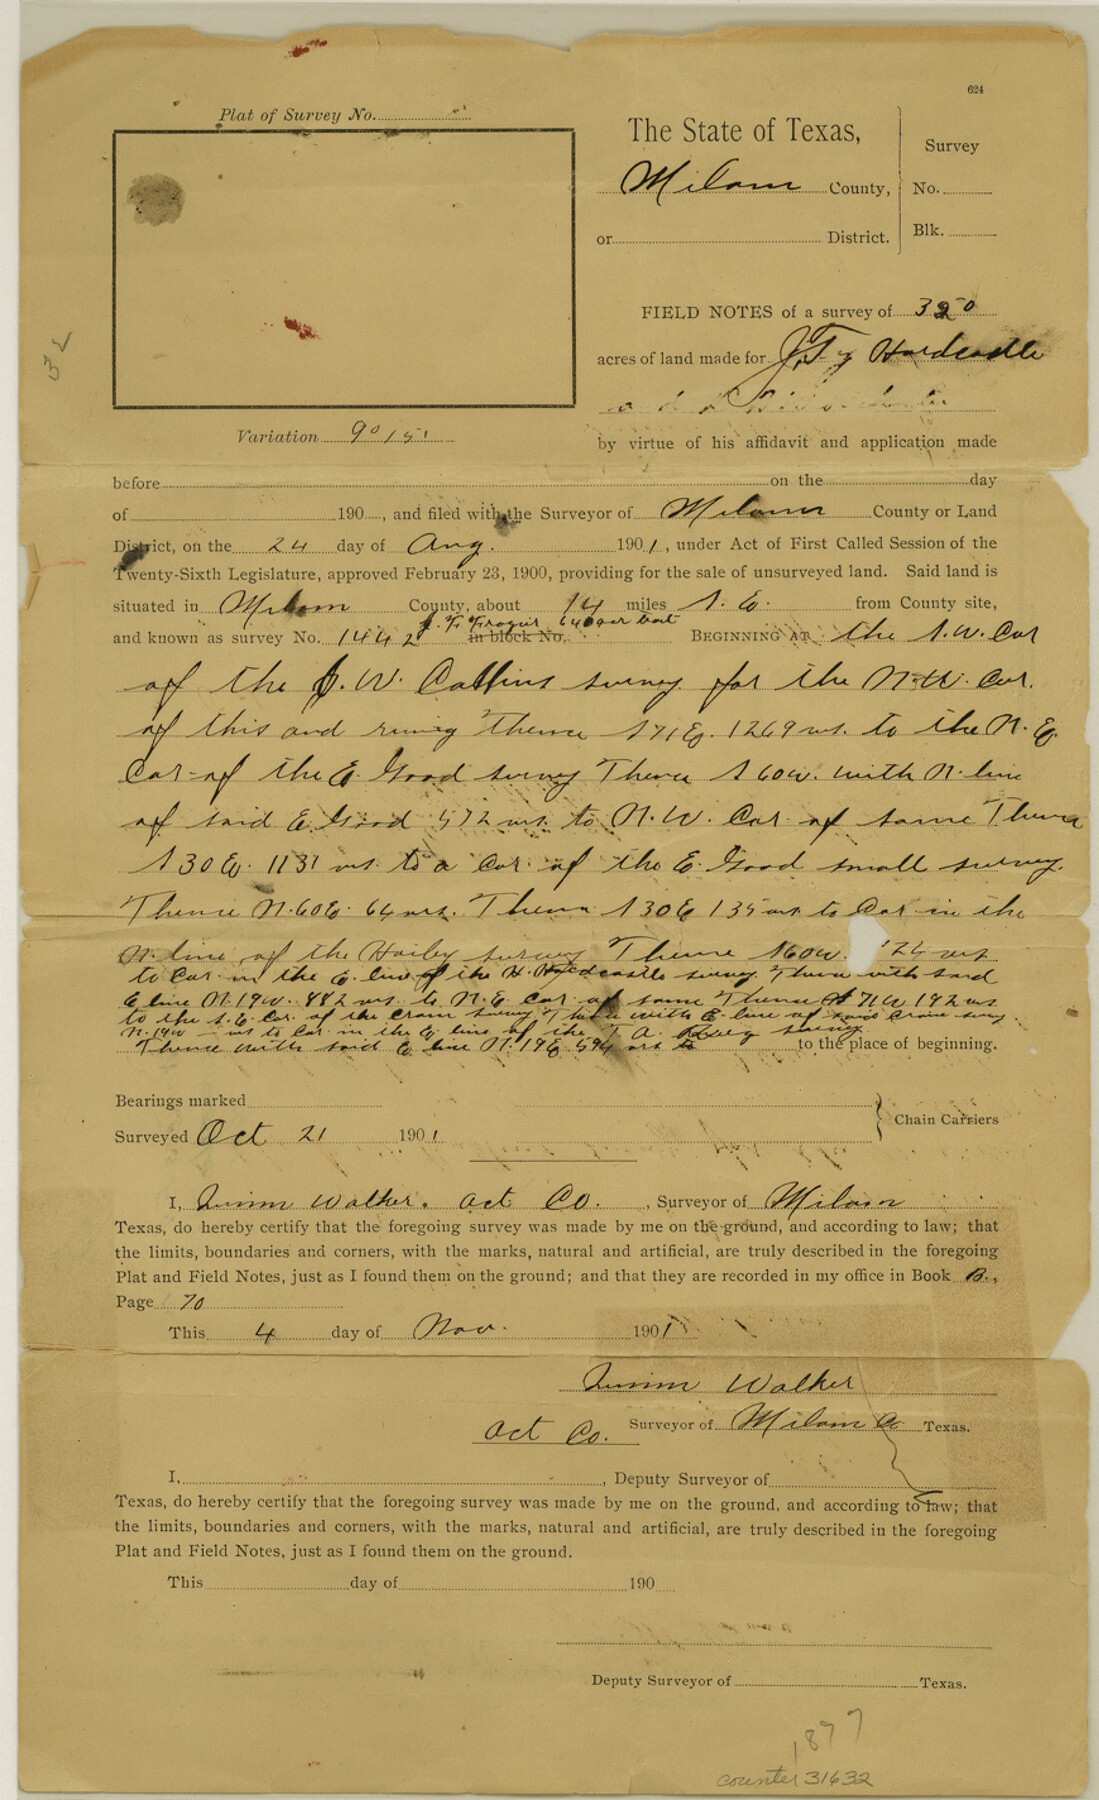 624
Plat of Survey No.
The State of Texas,
Milam County,
or District.
Survey
No.
Blk.
FIELD NOTES of a survey of 320
acres of land made for J. T. Hardcastle
Variation 9° 15'
by virtue of his affidavit and application made
before on the day
of 190 , and filed with the Surveyor of Milam County or Land
District, on the 24 day of Aug. 1901, under Act of First Called Session of the
Twenty-Sixth Legislature, approved February 23, 1900, providing for the sale of unsurveyed land. Said land is
situated in Milam County, about 14 miles S. E. from County site,
and known as survey No. 1442 in block No. BEGINNING AT the S.W. Cor
of the J. W. Collins survey for the N.W. Cor.
of this and runing Thence S 71 E. 1269 vrs. to the N. E.
Cor of the E. Good survey Thence S 60 W. with N. line
of said E. Good 572 vrs. to N. W. Cor of same Thence
S 30 E. 1131 vrs to a Cor. of the E. Good small survey.
Thence N. 60 E. 64 vrs. Thence S 30 E 135 vrs to Cor in the
N. line of the Hailey survey Thence S 60 W. 24 vrs
to Cor. in the E. line of the H. Hardcastle survey. Thence with said
E line N. 19 W. 882 vrs. to N. E. Cor of same Thence S 71 W 192 vrs
to the S. E. Cor. of the Crain survey Thence with E. line of said Crain survy.
N. 19 W vrs to Cor. in the E. line of the T. A. survey
Thence with said E line N. 19 E. 594 vrs to to the place of beginning.
Bearings marked
Surveyed Oct 21 1901
Chain Carriers
I, Walker. Act Co. , Surveyor of Milam
Texas, do hereby certify that the foregoing survey was made by me on the ground, and according to law; that
the limits, boundaries and corners, with the marks, natural and artificial, are truly described in the foregoing
Plat and Field Notes, just as I found them on the ground; and that they are recorded in my office in Book B.,
Page 70
This 4 day of Nov. 1901
Walker
Act Co. Surveyor of Milam Co Texas.
I, , Deputy Surveyor of
Texas, do hereby certify that the foregoing survey was made by me on the ground, and according to law; that
the limits, boundaries and corners, with the marks, natural and artificial, are truly described in the foregoing
Plat and Field Notes, just as I found them on the ground.
This day of 190
Deputy Surveyor of Texas.
1877
counter 31632